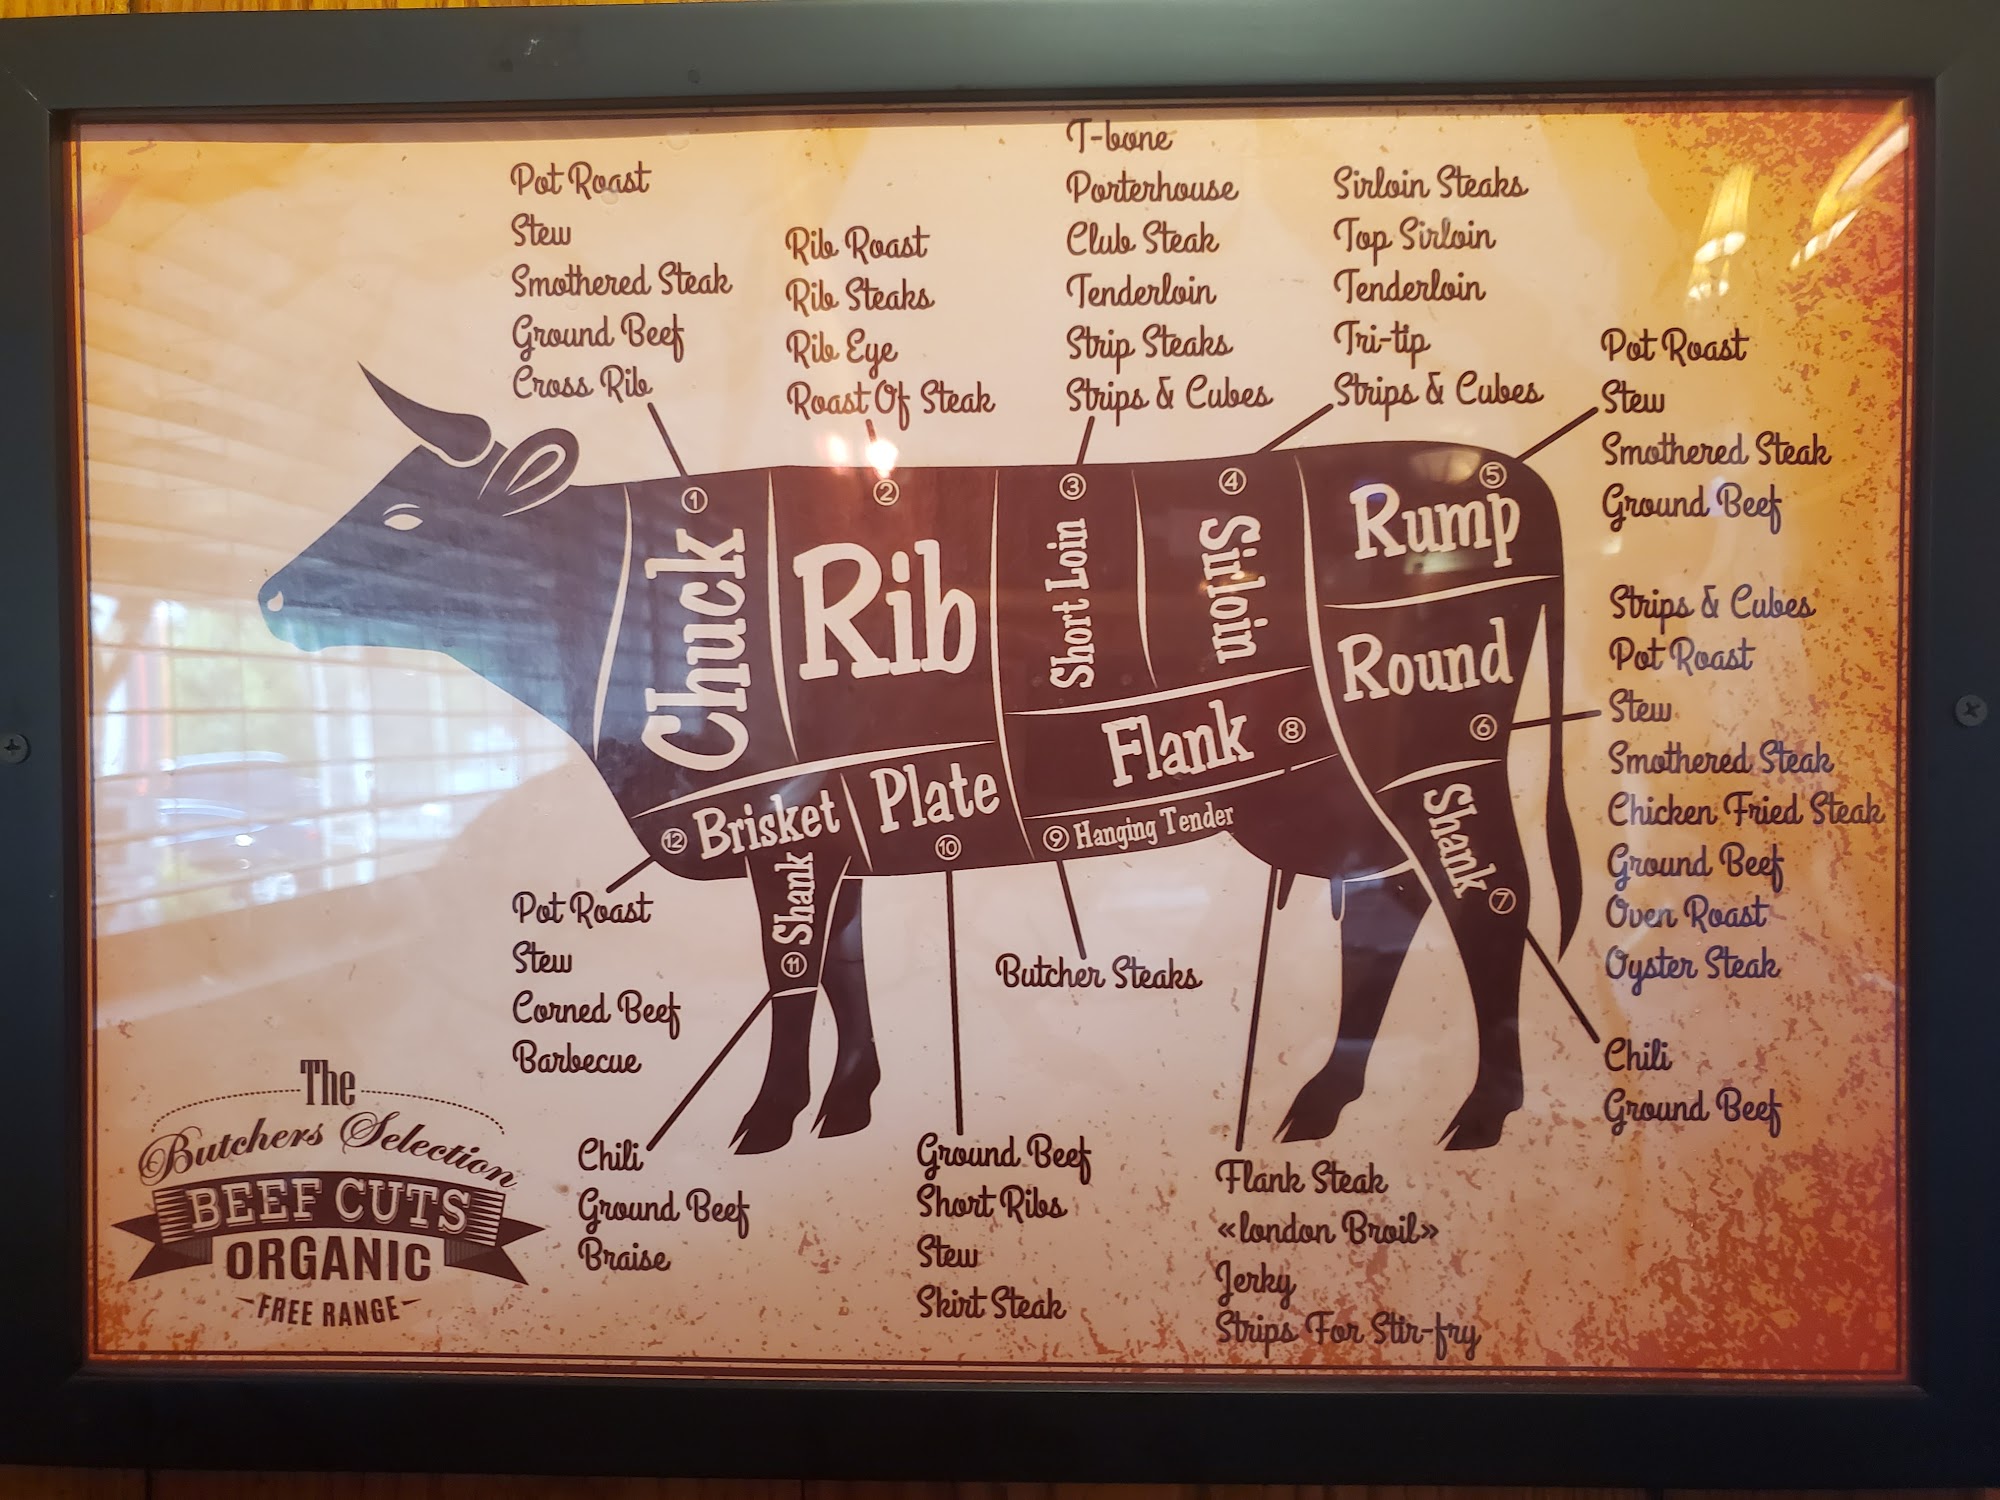 Pot Roast
Stew
Smothered Steak
Ground Beef
Cross Rib
Rib Roast
Rib Steaks
Rib Eye
Roast Of Steak
T-bone
Porterhouse
Club Steak
Tenderloin
Strip Steaks
Strips & Cubes
Sirloin Steaks
Top Sirloin
Tenderloin
Tri-tip
Strips & Cubes
Pot Roast
Stew
Smothered Steak
Ground Beef
① Chuck
② Rib
③ Short Loin
④ Sirloin
⑤ Rump
Round ⑥
Shank ⑦
Flank ⑧
⑨ Hanging Tender
Plate ⑩
Shank ⑪
⑫ Brisket
Strips & Cubes
Pot Roast
Stew
Smothered Steak
Chicken Fried Steak
Ground Beef
Oven Roast
Oyster Steak
Chili
Ground Beef
Pot Roast
Stew
Corned Beef
Barbecue
Butcher Steaks
Chili
Ground Beef
Braise
Ground Beef
Short Ribs
Stew
Skirt Steak
Flank Steak
«london Broil»
Jerky
Strips For Stir-fry
The
Butchers Selection
BEEF CUTS
ORGANIC
FREE RANGE